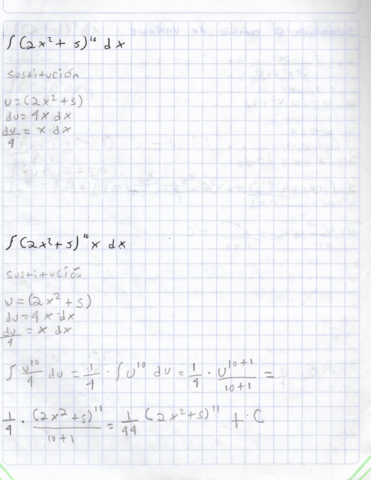 ∫(2x²+5)¹⁰ dx
sustitución
u=(2x²+5)
du=4x dx
du/4 = x dx
∫(2x²+5)¹⁰x dx
sustitución
u=(2x²+5)
du=4x dx
du/4 = x dx
∫ u¹⁰/4 du = 1/4 · ∫u¹⁰ du = 1/4 · u¹⁰⁺¹/10+1 =
1/4 · (2x²+5)¹¹/10+1 = 1/44 (2x²+5)¹¹ + C